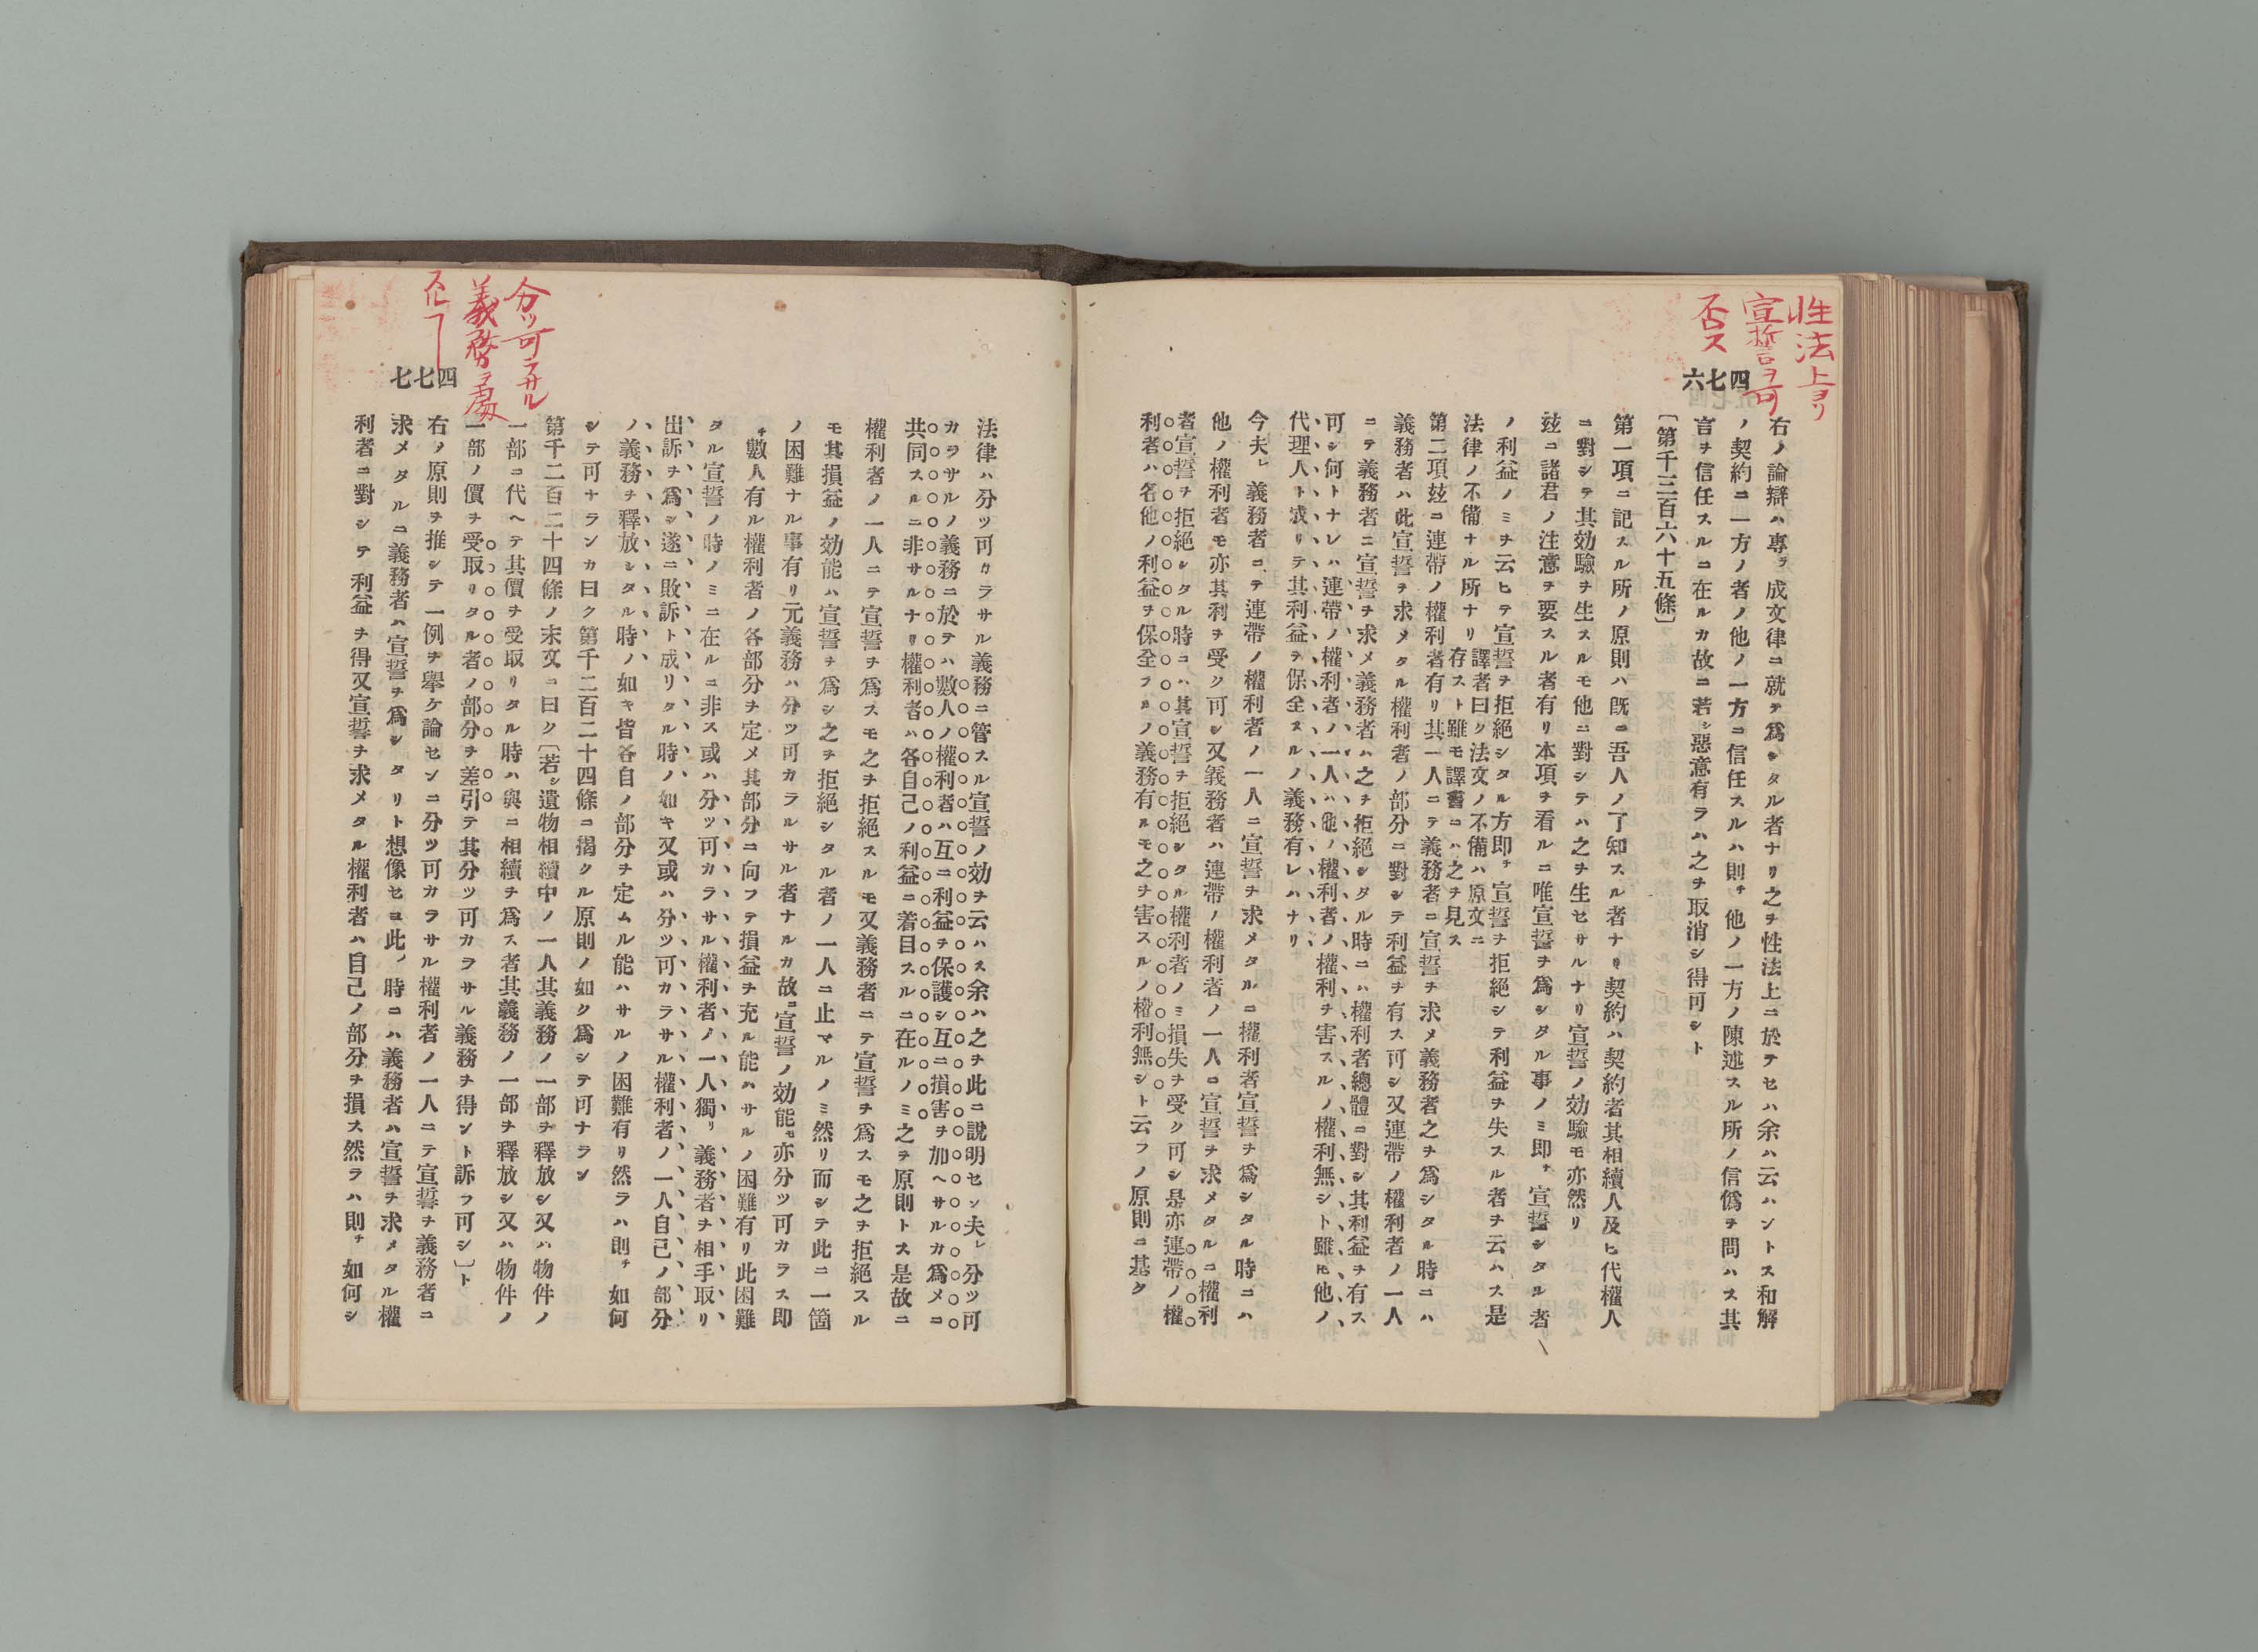 性法上ヨリ
宣誓ヲ可
否ス
四七六
右ノ論辯ハ專ラ成文律ニ就テ爲シタル者ナリ之ヲ性法上ニ於テセハ余ハ云ハントス和解
ノ契約ニ一方ノ者ノ他ノ一方ニ信任スルハ則チ他ノ一方ノ陳述スル所ノ信僞ヲ問ハス其
言ヲ信任スルニ在ルカ故ニ若シ惡意有ラハ之ヲ取消シ得可シト
〔第千三百六十五條〕
第一項ニ記スル所ノ原則ハ既ニ吾人ノ了知スル者ナリ契約ハ契約者其相續人及ヒ代權人
ニ對シテ其効驗ヲ生スルモ他ニ對シテハ之ヲ生セサルナリ宣誓ノ効驗モ亦然リ
玆ニ諸君ノ注意ヲ要スル者有リ本項ヲ看ルニ唯宣誓ヲ爲シタル事ノミ即チ宣誓シタル者
ノ利益ノミヲ云ヒテ宣誓ヲ拒絕シタル方即チ宣誓ヲ拒絕シテ利益ヲ失スル者ヲ云ハス是
法律ノ不備ナル所ナリ
譯者曰ク法文ノ不備ハ原文ニ
存スト雖モ譯書ニハ之ヲ見ス
第二項玆ニ連帶ノ權利者有リ其一人ニテ義務者ニ宣誓ヲ求メ義務者之ヲ爲シタル時ニハ
義務者ハ此宣誓ヲ求メタル權利者ノ部分ニ對シテ利益ヲ有ス可シ又連帶ノ權利者ノ一人
ニテ義務者ニ宣誓ヲ求メ義務者ハ之ヲ拒絕シタル時ニハ權利者總體ニ對シ其利益ヲ有ス
可シ何トナレハ連帶ノ權利者ノ一人ハ他ノ權利者ノ權利ヲ害スルノ權利無シト雖𪜈他ノ
代理人ト成リテ其利益ヲ保全スルノ義務有レハナリ
今夫レ義務者ニテ連帶ノ權利者ノ一人ニ宣誓ヲ求メタルニ權利者宣誓ヲ爲シタル時ニハ
他ノ權利者モ亦其利ヲ受ク可シ又義務者ハ連帶ノ權利者ノ一人ニ宣誓ヲ求メタルニ權利
者宣誓ヲ拒絕シタル時ニハ其宣誓ヲ拒絕シタル權利者ノミ損失ヲ受ク可シ是亦連帶ノ權
利者ハ各他ノ利益ヲ保全スルノ義務有ルモ之ヲ害スルノ權利無シト云フノ原則ニ基ク
分ツ可ラサル
義務ヲ處
スルヿ
四七七
法律ハ分ツ可カラサル義務ニ管スル宣誓ノ効ヲ云ハス余ハ之ヲ此ニ說明セン夫レ分ツ可
カラサルノ義務ニ於テハ數人ノ權利者ハ互ニ利益ヲ保護シ互ニ損害ヲ加ヘサルカ爲メニ
共同スルニ非サルナリ權利者ハ各自己ノ利益ニ着目スルニ在ルノミ之ヲ原則トス是故ニ
權利者ノ一人ニテ宣誓ヲ爲スモ之ヲ拒絕スルモ又義務者ニテ宣誓ヲ爲スモ之ヲ拒絕スル
モ其損益ノ効能ハ宣誓ヲ爲シ之ヲ拒絕シタル者ノ一人ニ止マルノミ然リ而シテ此ニ一箇
ノ困難ナル事有リ元義務ハ分ツ可カラルサル者ナルカ故ニ宣誓ノ効能モ亦分ツ可カラス即
チ數人有ル權利者ノ各部分ヲ定メ其部分ニ向フテ損益ヲ充ル能ハサルノ困難有リ此困難
タル宣誓ノ時ノミニ在ルニ非ス或ハ分ツ可カラサル權利者ノ一人獨リ義務者ヲ相手取リ
出訴ヲ爲シ遂ニ敗訴ト成リタル時ノ如キ又或ハ分ツ可カラサル權利者ノ一人自己ノ部分
ノ義務ヲ釋放シタル時ノ如キ皆各自ノ部分ヲ定ムル能ハサルノ困難有リ然ラハ則チ如何
シテ可ナランカ曰ク第千二百二十四條ニ揭クル原則ノ如ク爲シテ可ナラン
第千二百二十四條ノ末文ニ曰ク〔若シ遺物相續中ノ一人其義務ノ一部ヲ釋放シ又ハ物件ノ
一部ニ代ヘテ其價ヲ受取リタル時ハ與ニ相續ヲ爲ス者其義務ノ一部ヲ釋放シ又ハ物件ノ
一部ノ價ヲ受取リタル者ノ部分ヲ差引テ其分ツ可カラサル義務ヲ得ント訴フ可シ〕ト
右ノ原則ヲ推シテ一例ヲ擧ケ論センニ分ツ可カラサル權利者ノ一人ニテ宣誓ヲ義務者ニ
求メタルニ義務者ハ宣誓ヲ爲シタリト想像セヨ此ノ時ニハ義務者ハ宣誓ヲ求メタル權
利者ニ對シテ利益ヲ得又宣誓ヲ求メタル權利者ハ自己ノ部分ヲ損ス然ラハ則チ如何シ